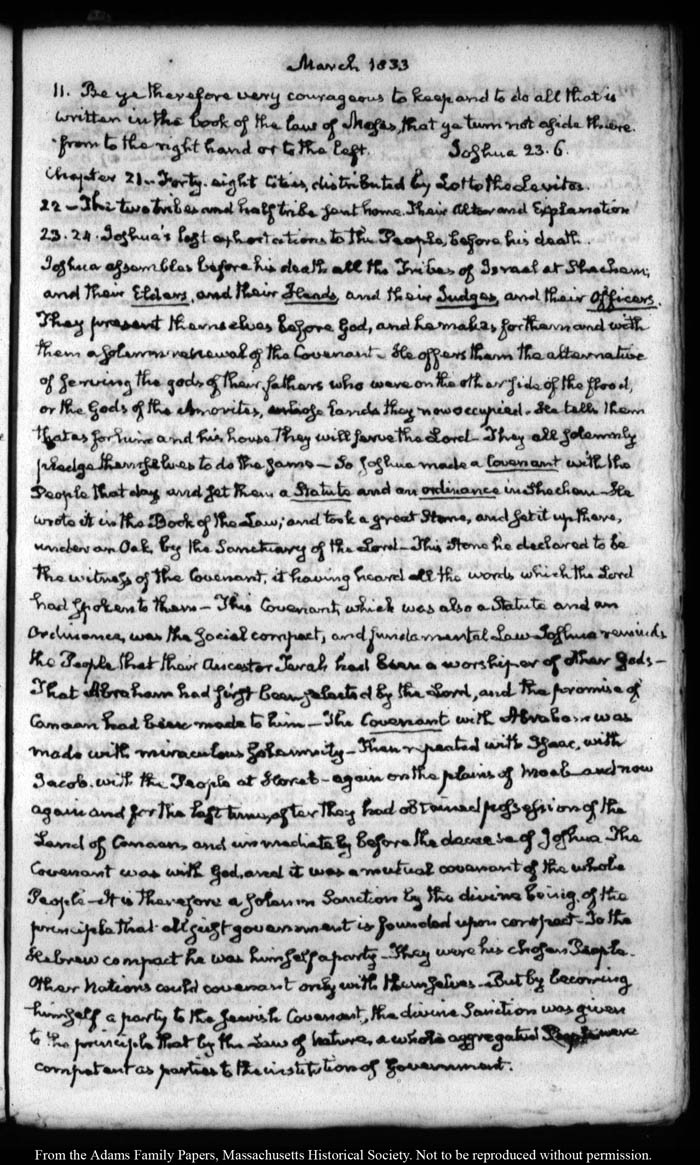 March 1833
11. Be ye therefore very courageous to keep and to do all that is
written in the book of the law of Moses, that ye turn not aside there-
from to the right hand or to the left. Joshua 23.6.
Chapter 21 – Forty-eight Cities, distributed by Lot to the Levites.
22 – The two tribes and half tribe sent home. Their Altar and Explanation
23. 24. Joshua's last exhortations to the People, before his death.
Joshua assembles before his death all the Tribes of Israel at Shechem,
and their Elders, and their Heads, and their Judges, and their Officers.
They present themselves before God, and he makes for them and with
them a solemn renewal of the Covenant – He offers them the alternative
of serving the gods of their fathers who were on the other side of the flood,
or the Gods of the Amorites, whose lands they now occupied. He tells them
that as for him and his house they will serve the Lord – They all solemnly
pledge themselves to do the same – So Joshua made a Covenant with the
People that day and set them a Statute and an ordinance in Shechem – He
wrote it in the Book of the Law, and took a great Stone, and set it up there,
under an Oak, by the Sanctuary of the Lord – This Stone he declared to be
the witness of the Covenant, it having heard all the words which the Lord
had spoken to them – This Covenant, which was also a Statute and an
Ordinance, was the social compact, and fundamental Law. Joshua reminds
the People that their Ancestor Tarah had been a worshiper of other Gods –
That Abraham had first been selected by the Lord, and the promise of
Canaan had been made to him – The Covenant with Abraham was
made with miraculous solemnity – Then repeated with Isaac, with
Jacob, with the People at Horeb – again on the plains of Moab – and now
again and for the last time, after they had obtained possession of the
Land of Canaan, and immediately before the decease of Joshua. The
Covenant was with God, and it was a mutual covenant of the whole
People – It is therefore a solemn Sanction by the divine being, of the
principle that all just government is founded upon compact – To the
Hebrew compact he was himself a party – They were his chosen People.
Other Nations could covenant only with themselves – But by becoming
himself a party to the Jewish Covenant, the divine Sanction was given
to the principle that by the Law of Nature, a whole aggregated People were
competent as parties to the institution of Government.
From the Adams Family Papers, Massachusetts Historical Society. Not to be reproduced without permission.